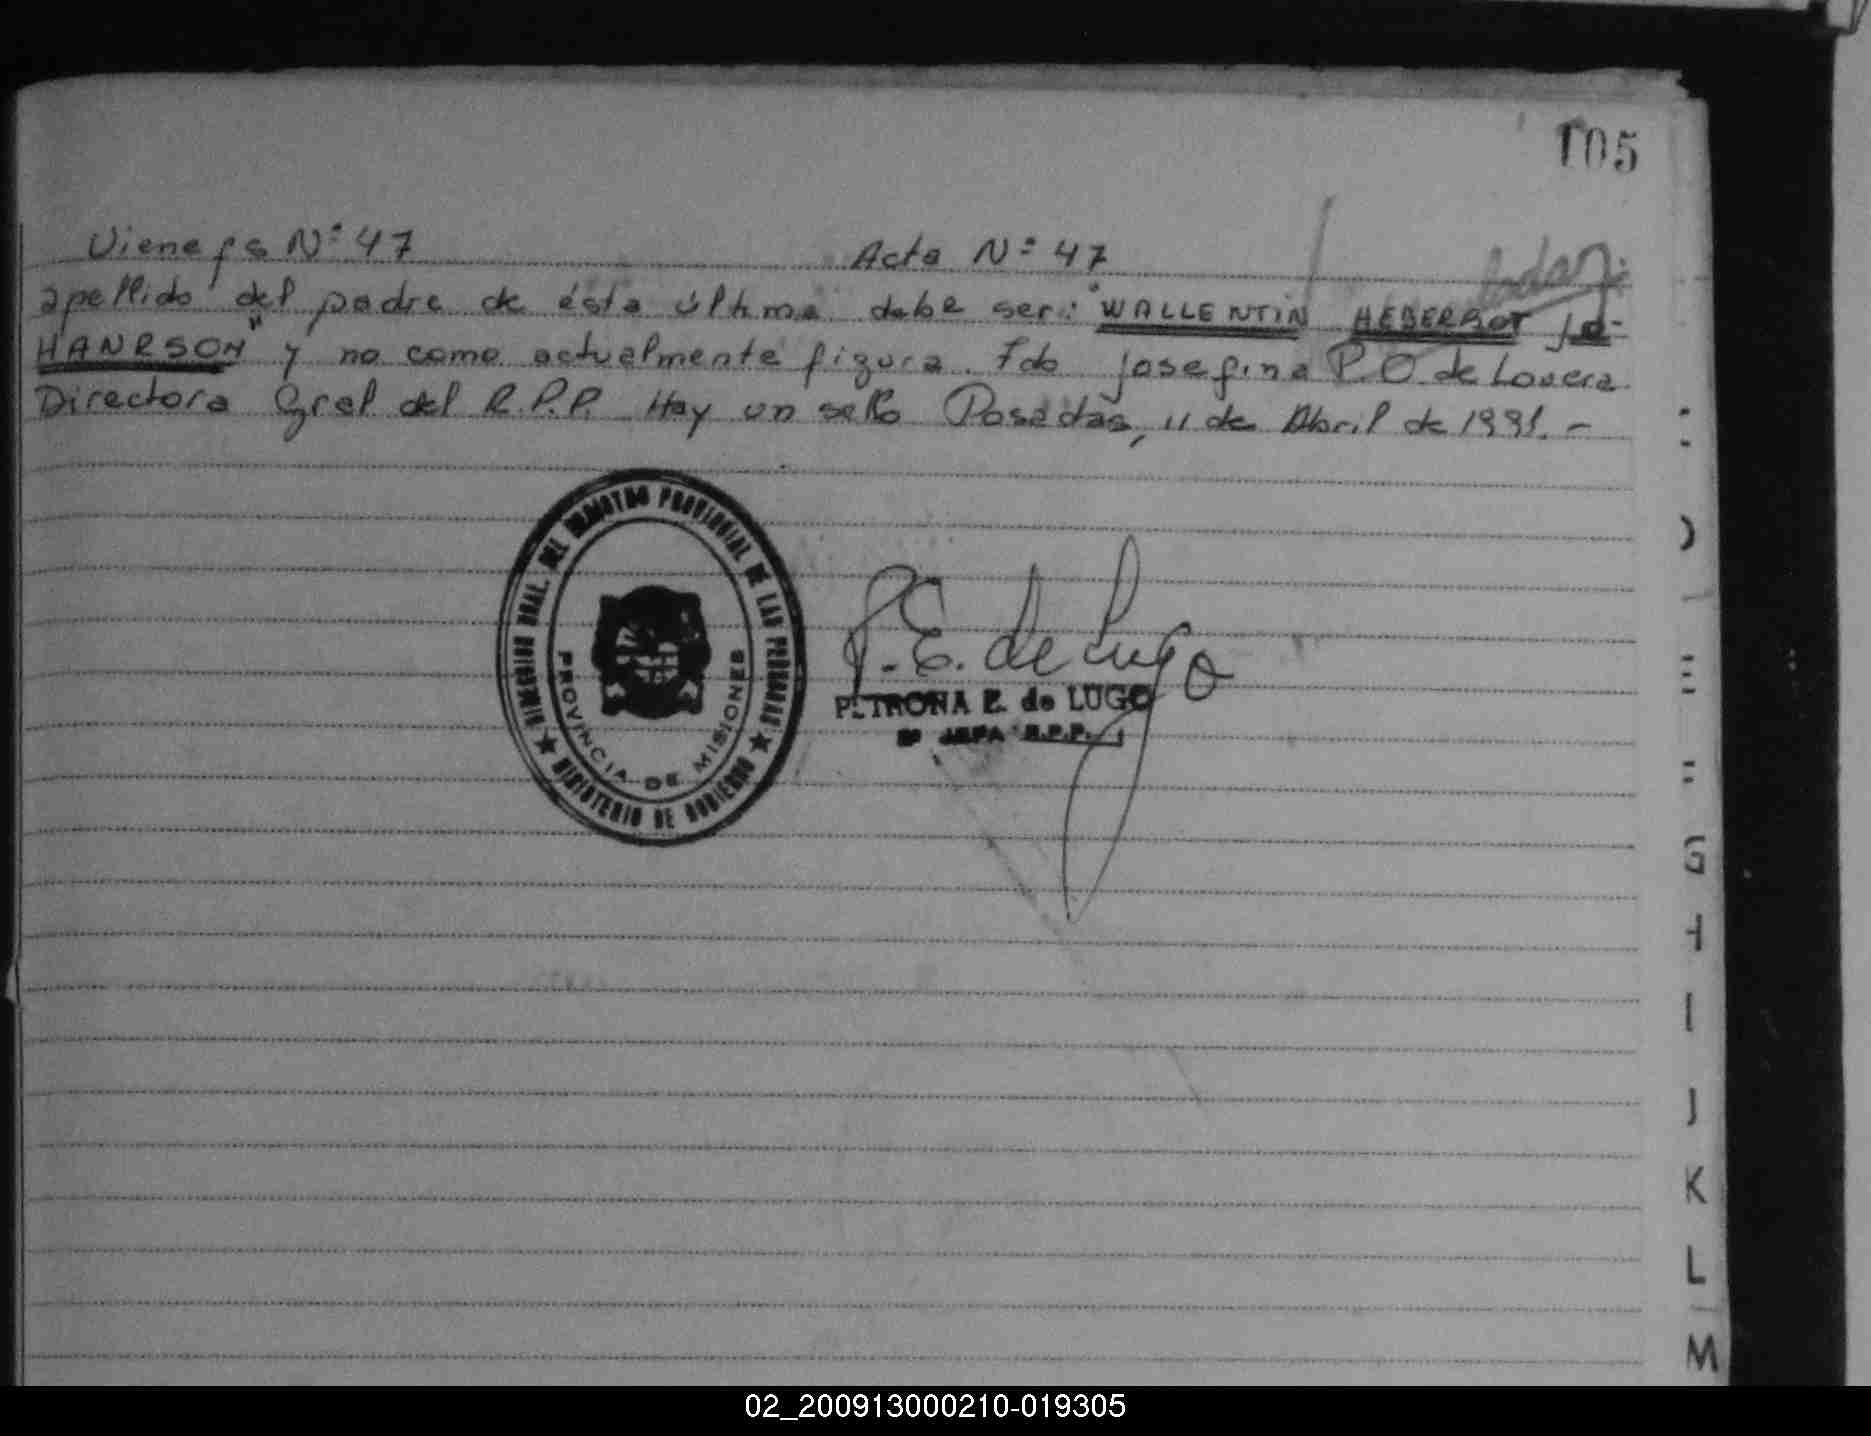 105
Viene fs Nº 47 Acta Nº 47
apellido del padre de ésta última debe ser: "WALLENTIN HEBERBOT Jo-
HANRSON" y no como actualmente figura. Fdo Josefina P.O. de Lovera
Directora Gral del R.P.P. Hay un sello Posadas, 11 de Abril de 1991.-
DIRECCION GRAL. DEL REGISTRO PROVINCIAL DE LAS PERSONAS
PROVINCIA DE MISIONES
MINISTERIO DE GOBIERNO
P.E. de Lugo
PETRONA E. de LUGO
JEFA R.P.P.
G
I
J
K
L
M
02_200913000210-019305